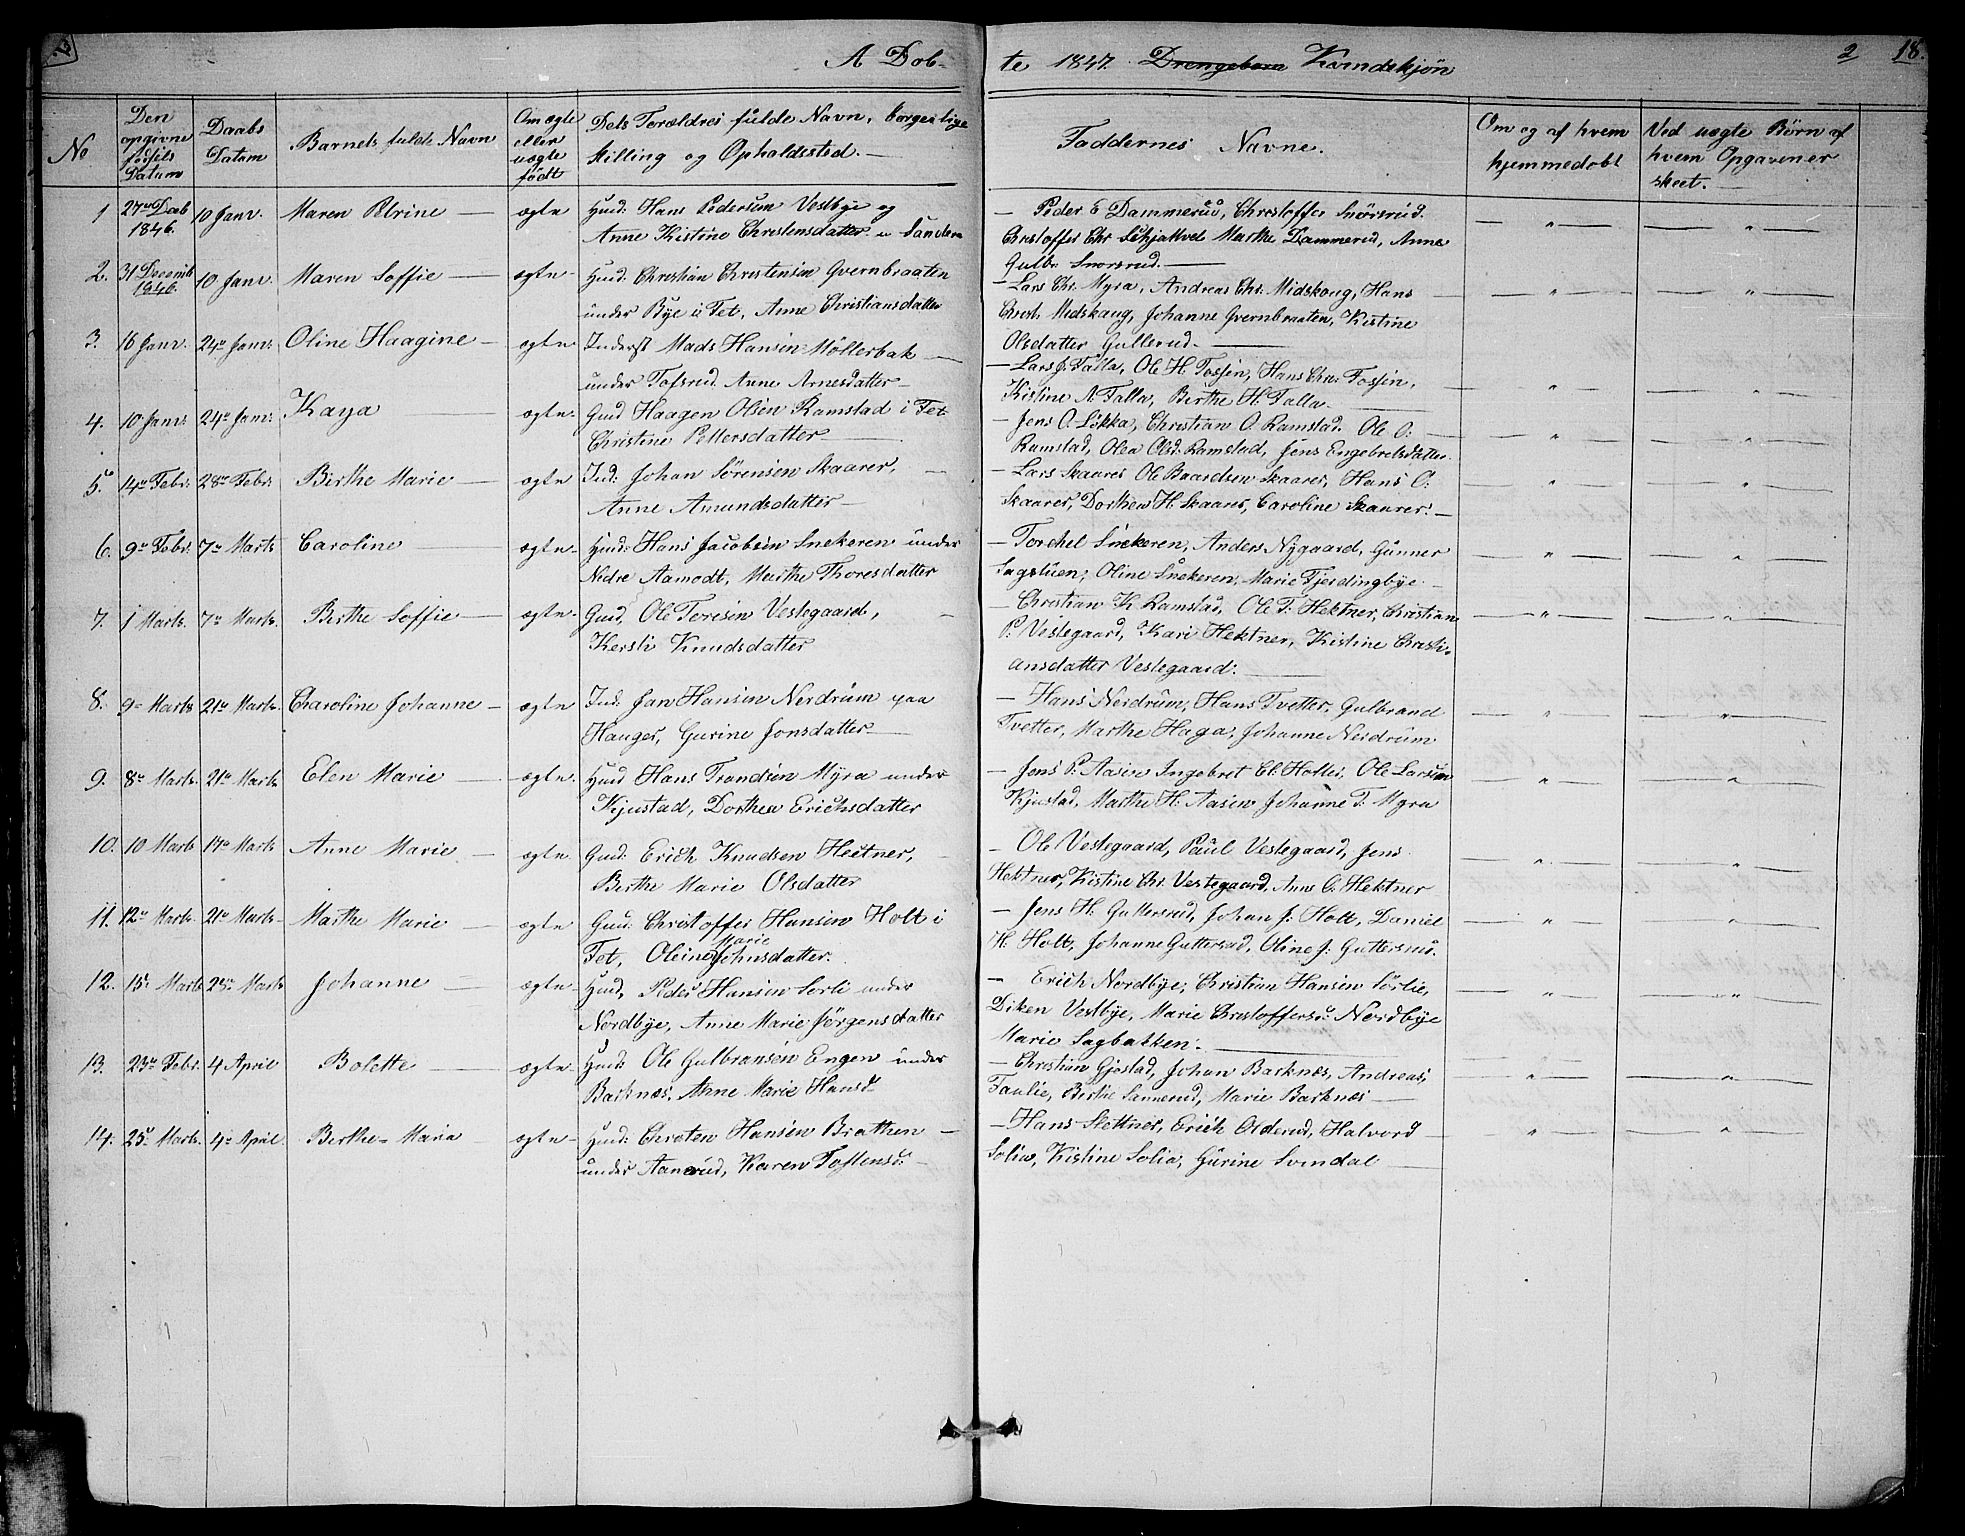 2
A Döb-
te 1847. Drengebørn Kvindekjön
2
18.
No
Den opgivne födsels Datum
Daabs Datum
Barnets fulde Navn
Om ægte eller uægte födt
Dets Forældres fulde Navn, borgerlige Stilling og Opholdssted.
Faddernes Navne.
Om og af hvem hjemmedöbt
Ved uægte Börn af hvem Opgavener skeet.
1 27de Decb 1846. 10 Janv. Maren Petrine — ægte Husm: Hans Pedersen Vestbye og
Anne Kistine Christensdatter
— Peder E Dammerud, Christoffer Snörsrud.
Christoffer Chr Schjatvet Marthe Dammerud, Anne
Gulbr. Snorsrud. —
2. 31 Decemb 1846. 10 Janv. Maren Soffie — ægte Husm: Christian Christensen Qvernbraaten
under Bye i Fet, Anne Christiansdatter
— Lars Chr. Myra, Andreas Chr. Midskoug, Hans
Christ. Midskaug, Johanne Qvernbraaten, Kistine
Olsdatter Gullerud. —
3. 16 Janv. 24de Janv. Oline Haagine — ægte Inderst Mads Hansen Möllerbak —
under Tofsrud. Anne Arnesdatter —
— Lars J. Falla, Ole H. Fossen, Hans Chr. Fossen,
Kistine A. Falla, Birthe H. Falla. —
4. 10 Janv. 24de Janv. Kaya — ægte Gmd Haagen Olsen Ramstad i Fet
Christine Pettersdatter —
— Jens O. Lökka, Christian O. Ramstad. Ole O:
Ramstad, Olea Olsd. Ramstad, Jens Engebretsdatter.
5. 14de Febr. 28de Febr. Birthe Marie — ægte Ind: Johan Sörensen Skaarer, —
Anne Amundsdatter —
— Lars Skaarer Ole Baardsen Skaarer, Hans O:
Skaarer, Dorthea H. Skaarer, Caroline Skaarer. —
6. 9de Febr. 7de Marts Caroline — ægte Husm: Hans Jacobsen Snekeren under
Nedre Aamodt, Marthe Thoresdatter
— Torchel Snekeren, Anders Nygaard, Gunner
Sagstuen, Oline Snekeren, Marie Tjerdingbye.
7. 1 Marts. 7de Marts. Birthe Soffie — ægte Gmd, Ole Toresen Vestegaard, —
Kersti Knudsdatter
— Christian K Ramstad, Ole T. Hektner, Christian
P. Vestegaard, Kari Hektner, Kistine Christi-
ansdatter Vestegaard. —
8. 9de Marts 21de Marts. Charoline Johanne — ægte Ind: Jan Hansen Nerdrum paa
Hauger, Gurine Jonsdatter —
— Hans Nerdrum, Hans Tvetter, Gulbrand
Tvetter, Marthe Haga, Johanne Nerdrum.
9. 8de Marts. 21de Marts. Elen Marie — ægte Husm Hans Trondsen Myra under
Kjustad, Dorthea Erichsdatter
— Jens P. Aasen Ingebret El. Holter, Ole Larsen
Kjustad, Marthe H. Aasen Johanne T. Myra
10. 10 Marts 17de Marts Anne Marie — ægte Gmd: Erich Knudsen Hektner, —
Berthe Marie Olsdatter
— Ole Vestegaard, Paul Vestegaard, Jens
Hektner, Kistine Chr. Vestegaard. Anne O. Hektner
11. 12de Marts. 21de Marts. Marthe Marie — ægte Gmd: Christoffer Hansen Holt i
Fet, Oleine Marie Johnsdatter.
— Jens H. Guttersrud, Johan J. Holt, Daniel
H. Holt, Johanne Guttersrud, Oline J. Guttersrud.
12. 15. Marts 28de Marts Johanne — ægte Husm, Peder Hansen Sorli under
Nordbye, Anne Marie Jörgensdatter
— Erich Nordbye, Christian Hansen Sörlie,
Diken Vestbye, Marie Christoffersd. Nordbye
Marie Sagbakken. —
13. 23de Febr. 4 April Bolette — ægte Husm: Ole Gulbransen Engen under
Barknæs, Anne Marie Hansd
— Christian Gjöstad, Johan Barknæs, Andreas
Faulie, Birthe Sannerud, Marie Barknæs —
14. 25. Marts. 4de April Berthe Maria — ægte Husm: Chresten Hansen Brathen —
under Aanerud, Karen Toftensd. —
— Hans Slettner, Erich Olderud, Halvord —
Solia, Kistine Solia, Gurine Svendal —